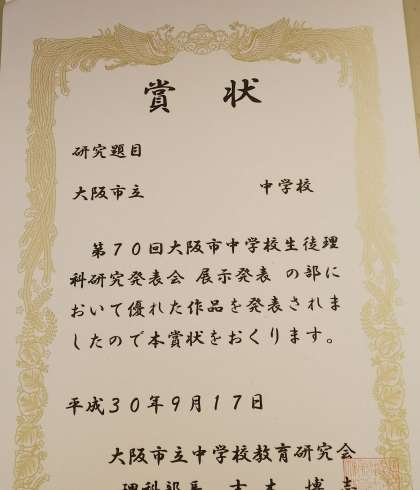 賞状
研究題目
大阪市立 中学校
第70回大阪市中学校生徒理
科研究発表会 展示発表 の部に
おいて優れた作品を発表されま
したので本賞状をおくります。
平成30年9月17日
大阪市立中学校教育研究会
理科部長 本 博志